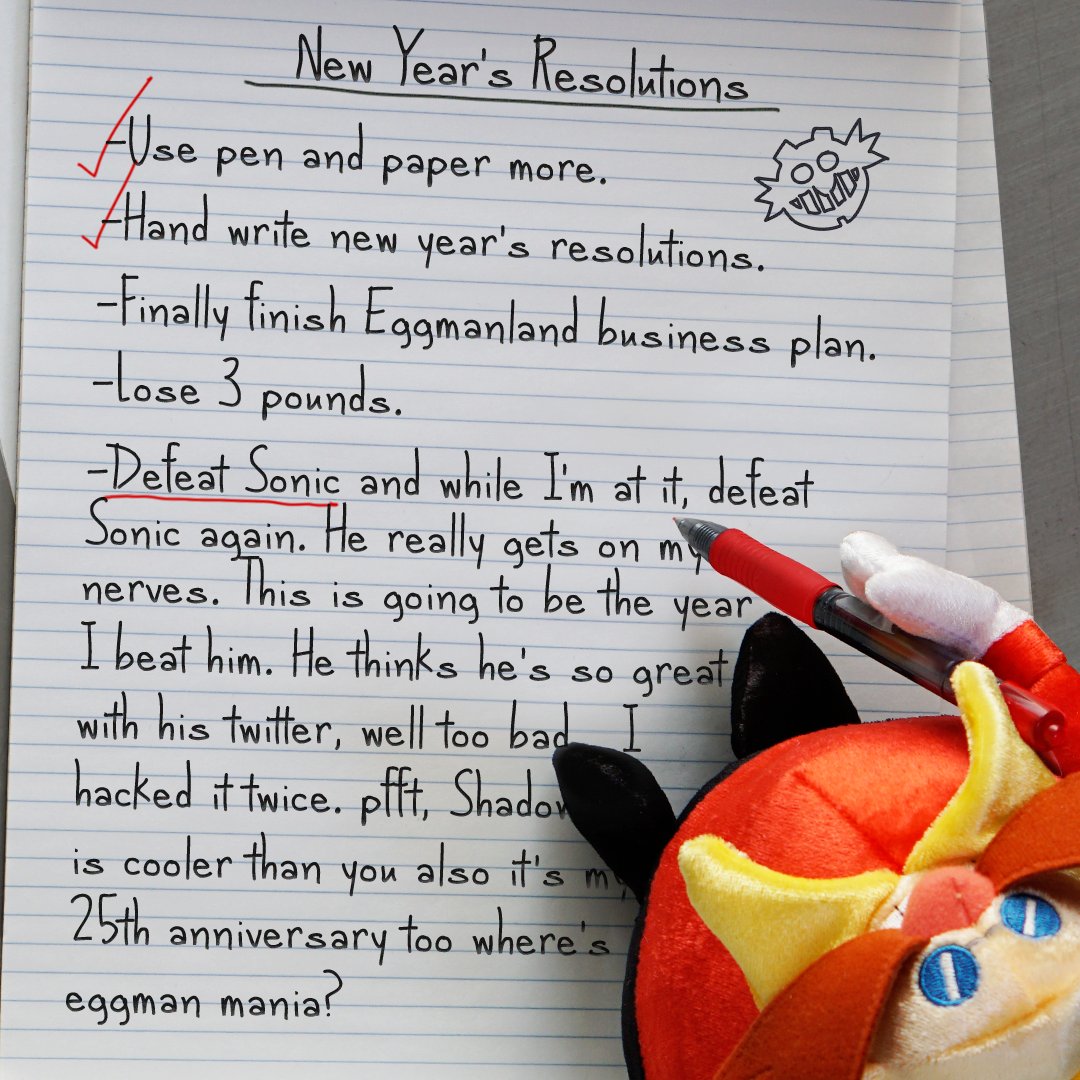 New Year's Resolutions
-Use pen and paper more.
-Hand write new year's resolutions.
-Finally finish Eggmanland business plan.
-Lose 3 pounds.
-Defeat Sonic and while I'm at it, defeat
Sonic again. He really gets on my
nerves. This is going to be the year
I beat him. He thinks he's so great
with his twitter, well too bad I
hacked it twice. pfft, Shadow
is cooler than you also it's my
25th anniversary too where's
eggman mania?